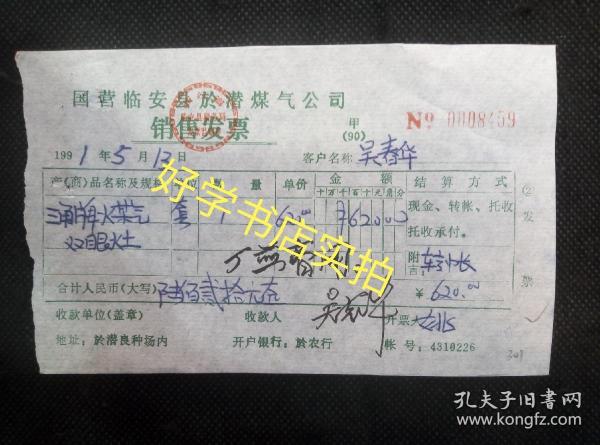 国营临安县於潜煤气公司
销售发票
甲
(90)
№ 0008459
1991年5月12日
客户名称 吴春华
产(商)品名称及规格 量 单价 金额 结算方式
十万千百十元角分
煤气 套 1 620.00 ¥62000
双眼灶
现金、转帐、托收
托收承付。
②发票
附
¥620.00
合计人民币(大写) 陆佰贰拾元
收款单位(盖章) 收款人 开票
地址:於潜良种场内 开户银行:於农行 帐号:4310226
好学书店实拍
孔夫子旧书网
kongfz.com